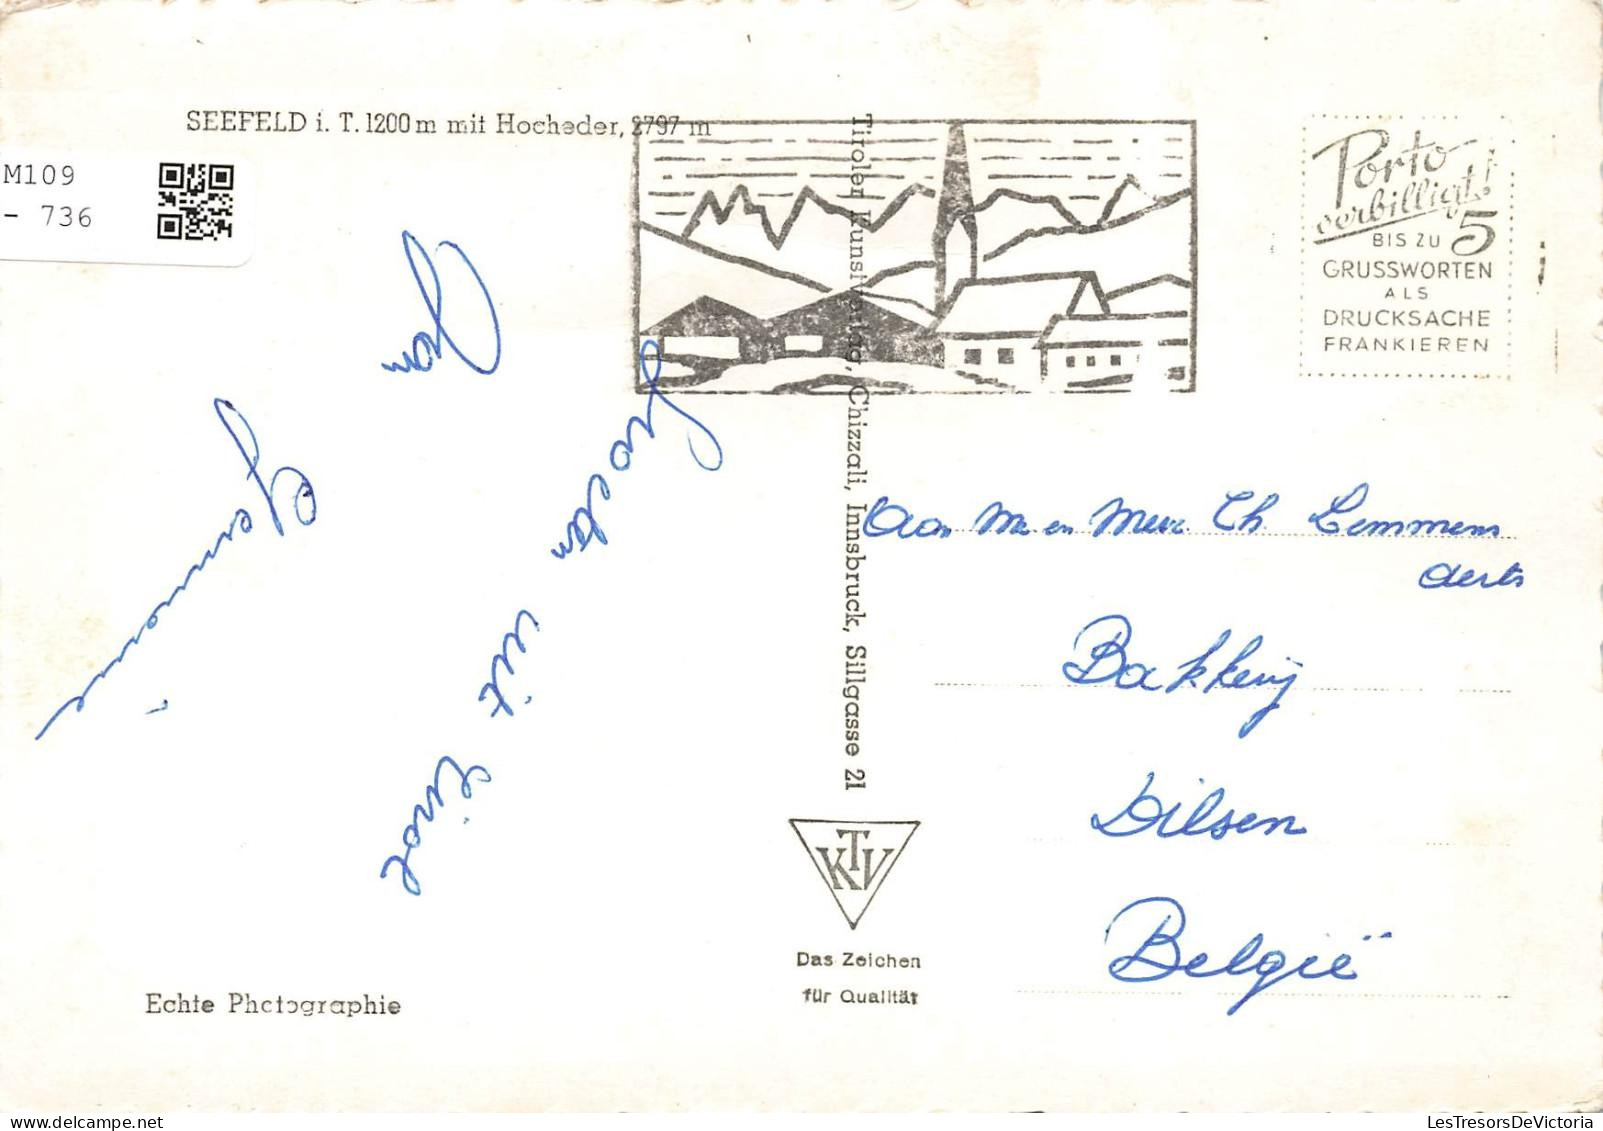 SEEFELD i. T. 1200 m mit Hocheder, 2797 m
M109
- 736
Tiroler Kunstverlag, Chizzali, Innsbruck, Sillgasse 21
Porto
verbilligt!
BIS ZU 5
GRUSSWORTEN
ALS
DRUCKSACHE
FRANKIEREN
Groeten uit Tirol
Jean
Germaine
Aan Mr en Mevr Th Lemmens
Aerts
Bakkerij
Dilsen
België
KTV
Das Zeichen
für Qualität
Echte Photographie
LesTresorsDeVictoria